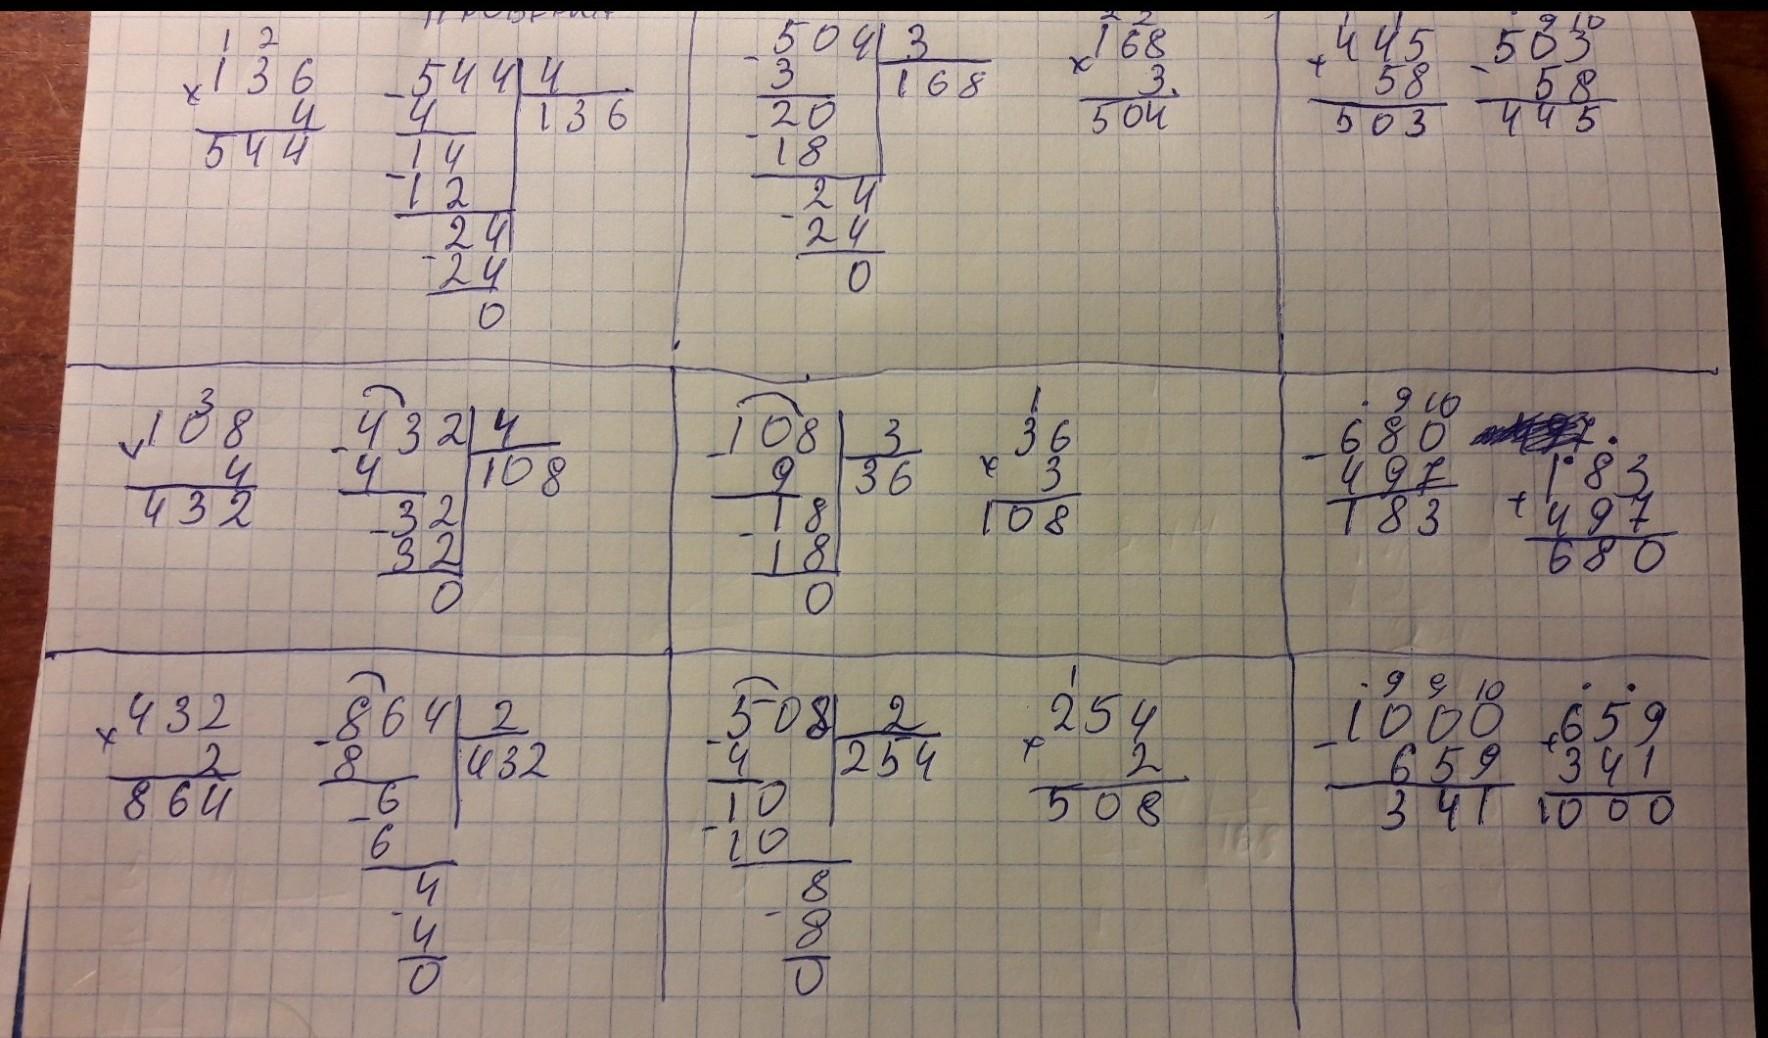 1 2
× 136
4
544
- 544 | 4
4 136
- 14
12
- 24
24
0
- 504 | 3
3 168
- 20
18
- 24
24
0
2 2
× 168
3.
504
1 1
+ 445
58
503
. 9 10
- 503
58
445
3
108
4
432
- 432 | 4
4 108
- 32
32
0
- 108 | 3
9 36
- 18
18
0
1
× 36
3
108
. 9 10
- 680
497
183
183
+ 497
680
× 432
2
864
- 864 | 2
8 432
- 6
6
- 4
4
0
- 508 | 2
4 254
- 10
10
- 8
8
0
1
× 254
2
508
. 9 9 10
- 1000
659
341
. .
+ 659
341
1000